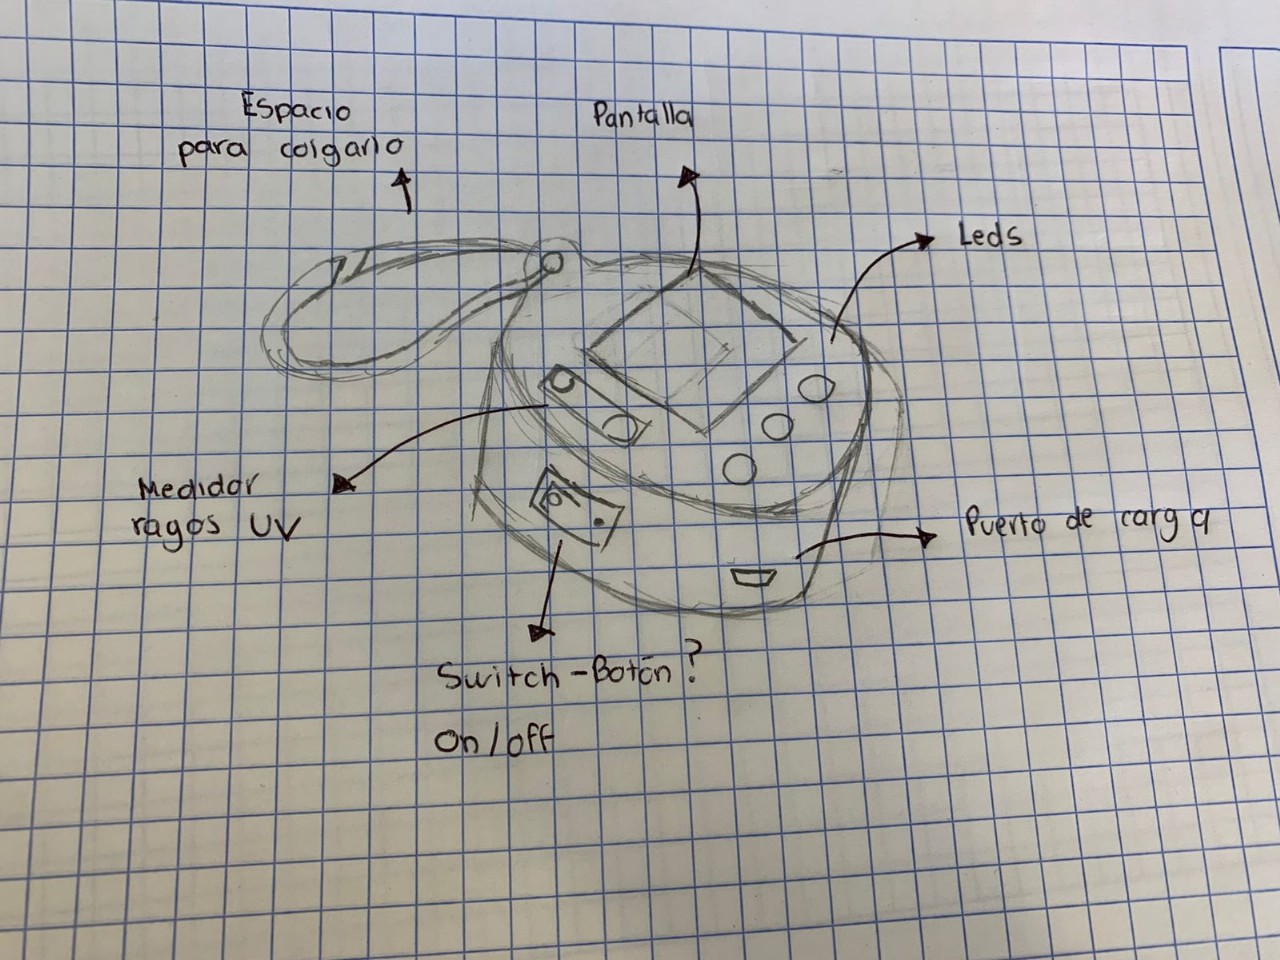 Espacio
para colgarlo
Pantalla
Leds
Medidor
rayos UV
Puerto de carga
Switch-Botón?
on/off